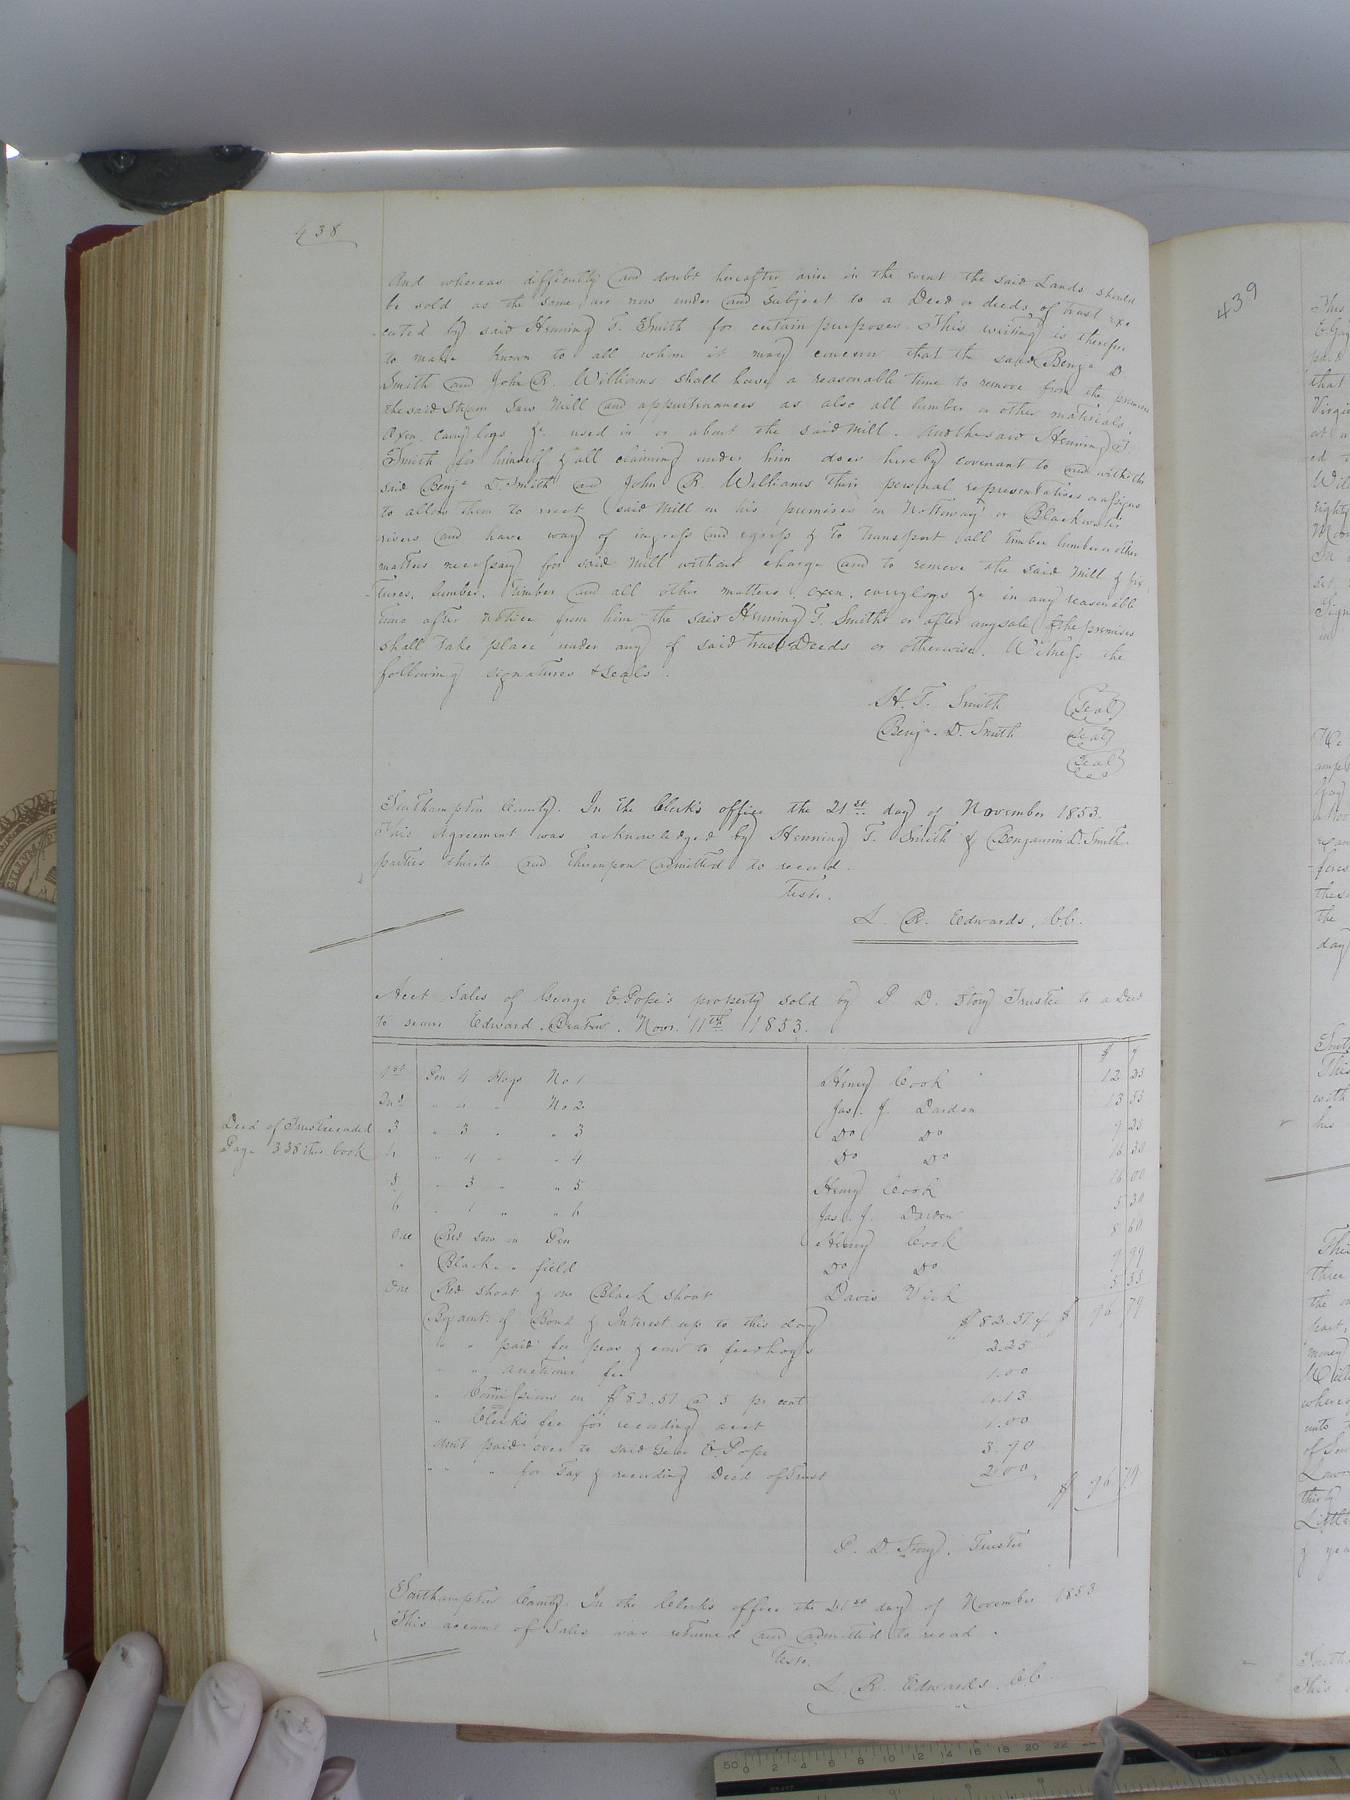 438
And whereas difficulty and doubt hereafter arise in the event the said Lands should
be sold as the same are now under and subject to a Deed or deeds of trust exe
cuted by said Henning T. Smith for certain purposes. This writing is therefore
to make known to all whom it may concern that the said Benja D.
Smith and John R. Williams shall have a reasonable time to remove from the premises
the said Steam Saw Mill and appurtenances as also all lumber or other materials,
Oxen, Carry logs &c used in or about the said Mill. And the said Henning T.
Smith for himself & all claiming under him does hereby covenant to and with the
said Benja D. Smith and John R. Williams their personal representatives or assigns
to allow them to erect said Mill on his premises on Nottoway or Blackwater
rivers and have way of ingress and egress & to transport all timber lumber or other
matters necessary for said Mill without charge and to remove the said Mill & fix
tures, lumber, timber and all other matters, oxen, carrylogs &c in any reasonable
time after notice from him the said Henning T. Smith or after any sale of the premises
shall take place under any of said trust Deeds or otherwise. Witness the
following signatures & seals.
H. T. Smith (Seal)
Benja. D. Smith (Seal)
(Seal)
Southampton County. In the Clerk's office the 21st day of November 1853.
This Agreement was acknowledged by Henning T. Smith & Benjamin D. Smith
parties thereto and thereupon admitted to record.
Teste.
L. R. Edwards, C.C.
Acct Sales of George E. Pope's property sold by P. D. Story Trustee to a Deed
to secure Edward Beaton. Novr. 11th 1853.
$ ¢
1st Pen 4 Hogs No 1 Henry Cook 12 25
2nd " 4 " No 2 Jas. J. Darden 13 55
Deed of Trust recorded
Page 338 this book
3 " 3 " " 3 Do Do 9 25
4 " 4 " " 4 Do Do 16 30
5 " 3 " " 5 Henry Cook 16 00
6 " 1 " " 6 Jas. J. Darden 5 30
One Red Sow in Pen Henry Cook 8 60
" Black " " field Do Do 9 99
One Red shoat & one Black shoat Davis Vick 5 55
$ 96 79
By amt. of Bond & Interest up to this day $82.51
" " paid for peas & corn to feed hogs 2.25
" " auctioneer fee 1.00
" Commissions on $82.51 @ 5 pr cent 4.13
" Clerk's fee for recording acct 1.00
Amt paid over to said Geo. E. Pope 3.90
" " " for Tax & recording Deed of Trust 2.00
$ 96 79
P. D. Story, Trustee
Southampton County. In the Clerks office the 21st day of November 1853
This account of Sales was returned and admitted to record.
Teste.
L. R. Edwards, C.C.
439